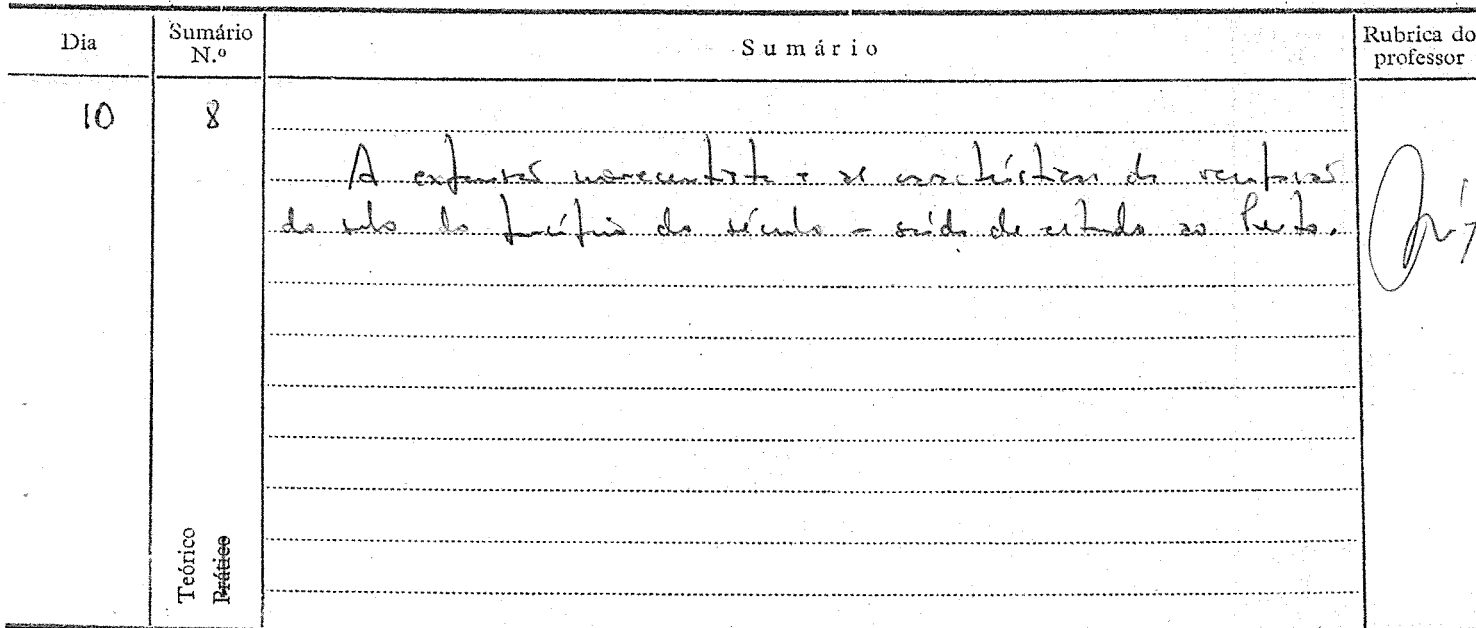 Dia
Sumário N.º
Sumário
Rubrica do professor
10
8
A expansão novecentista e as características da
do solo do princípio do século - saída de estudo ao
Teórico
Prático